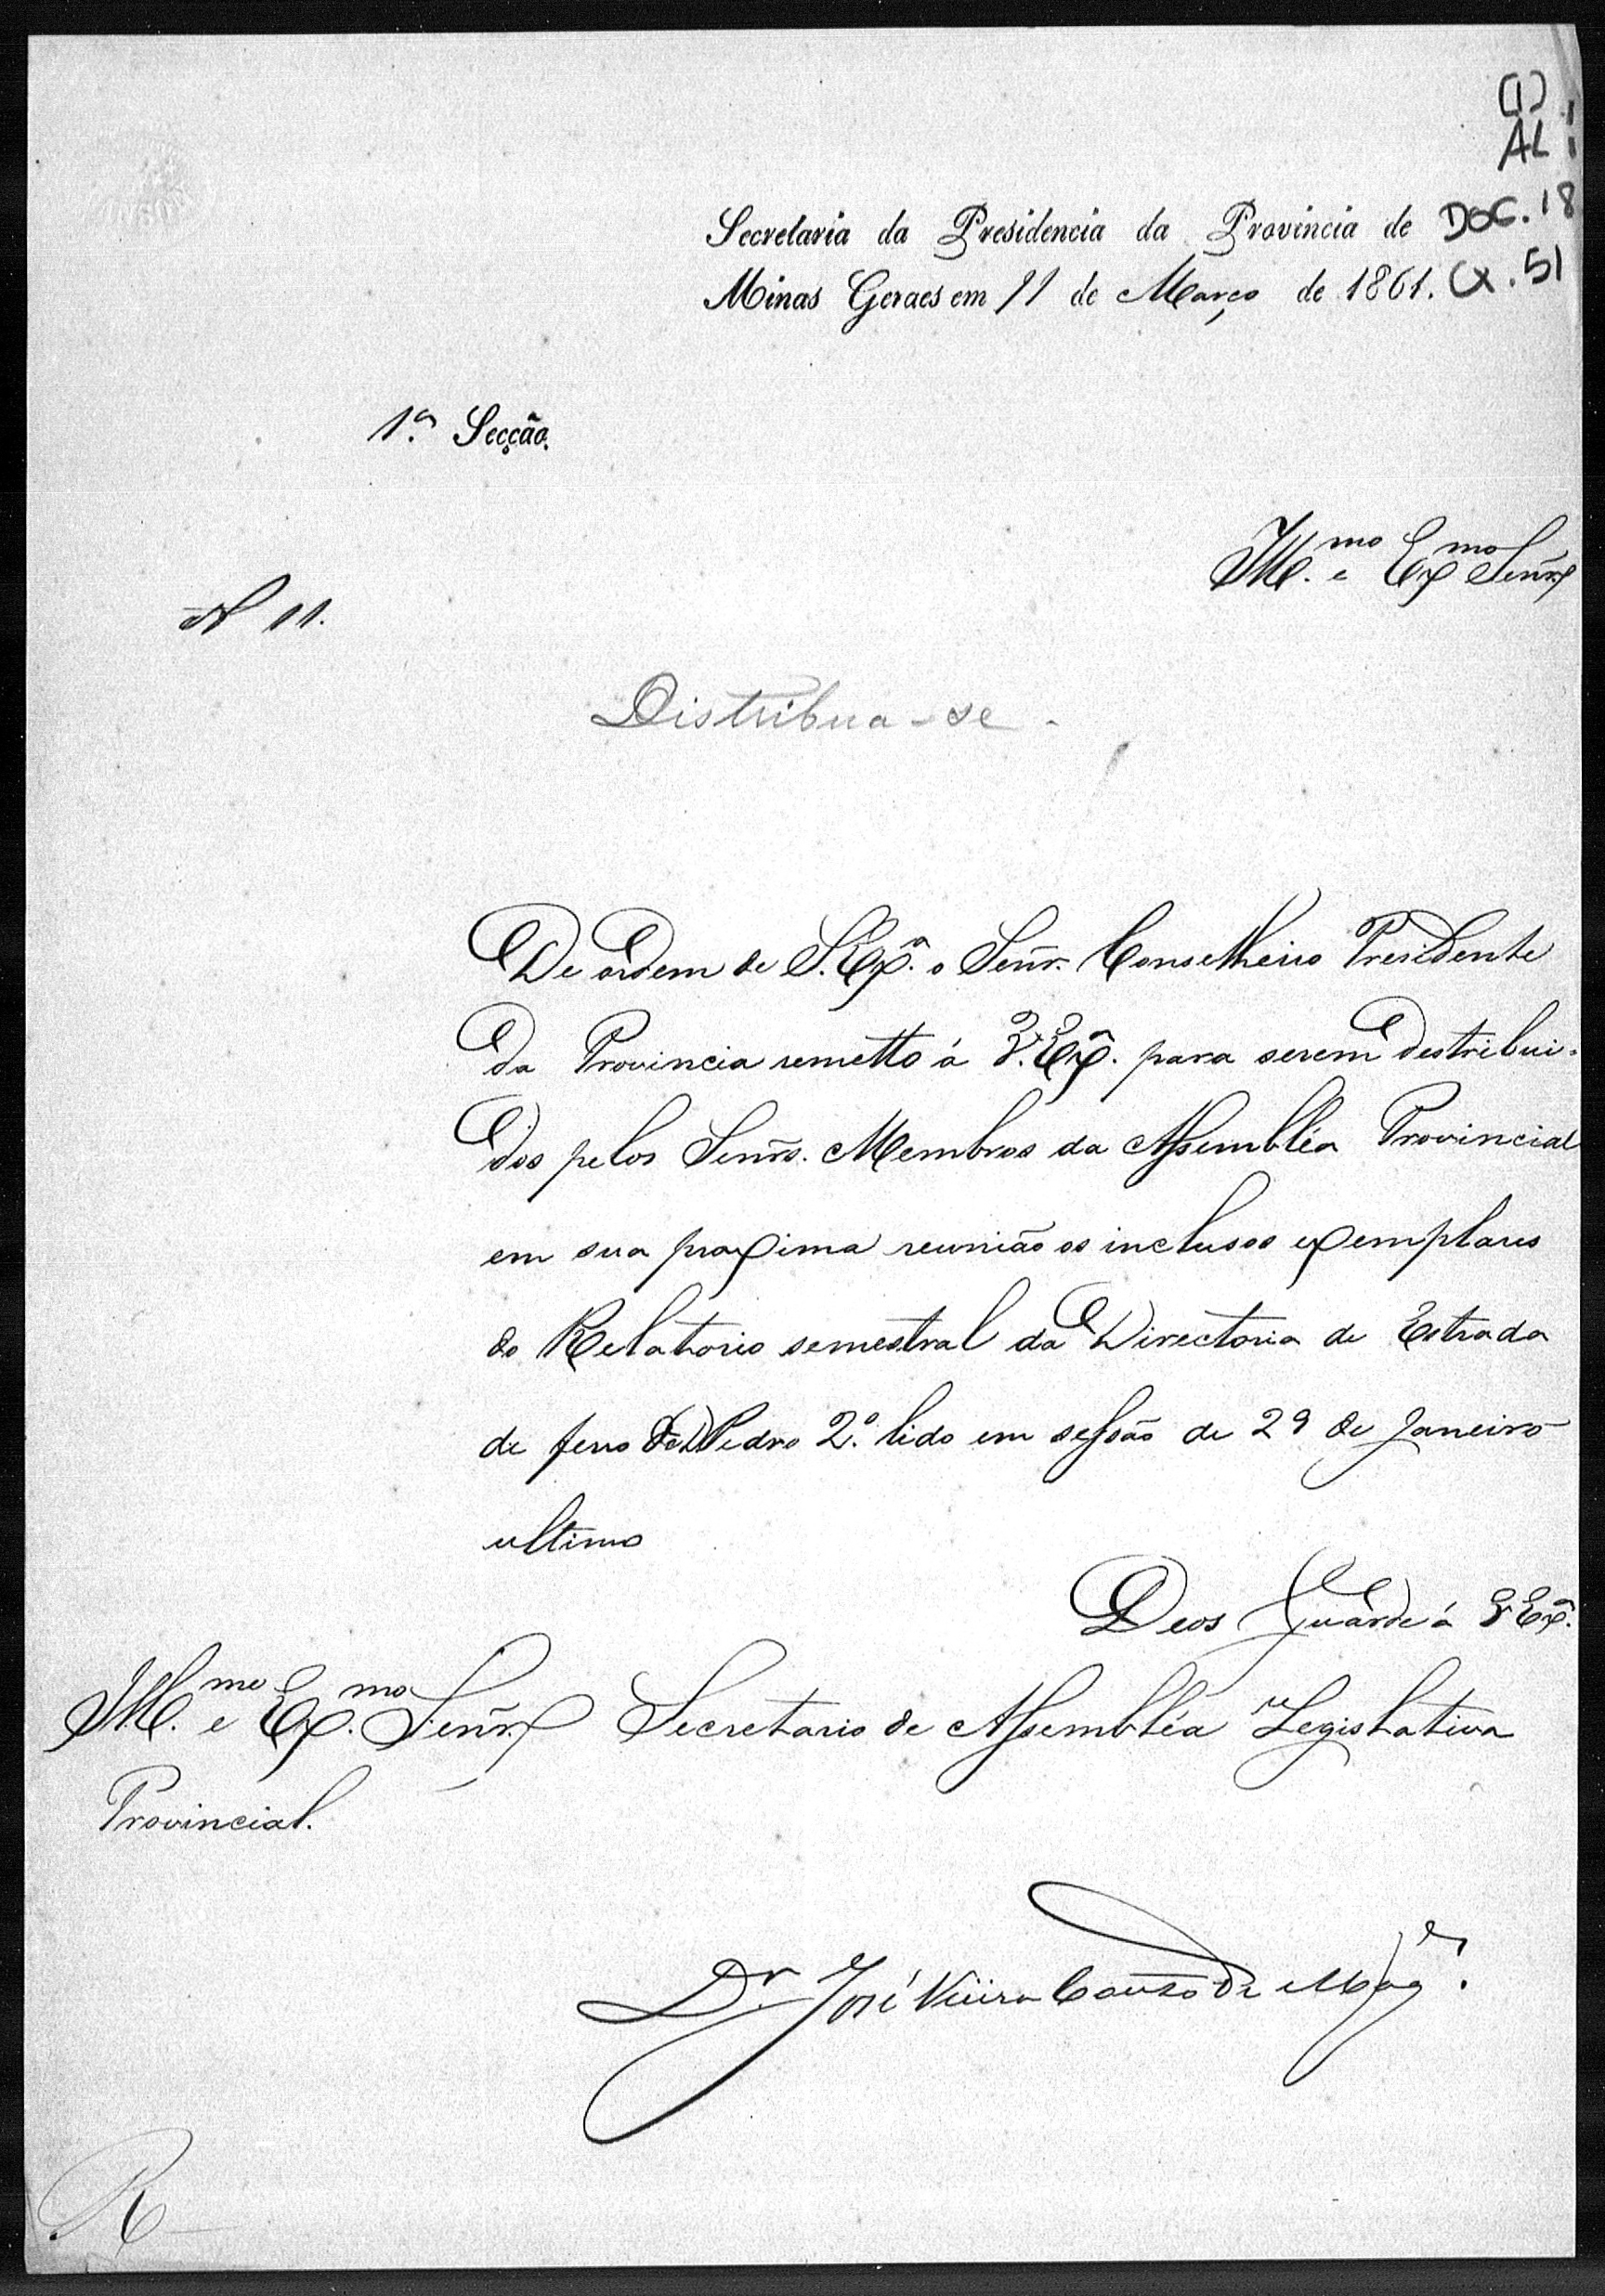 (1)
AL 1
DOC. 18
CX. 51
Secretaria da Presidencia da Provincia de
Minas Geraes em 11 de Março de 1861.
1.ª Secção.
Ill.mo e Ex.mo Senr.
N 11.
Distribua-se.
De ordem de S. Ex.ª o Senr. Conselheiro Presidente
da Provincia remetto á V. Ex.ª para serem destribui-
dos pelos Senrs. Membros da Assembléa Provincial
em sua proxima reunião os inclusos exemplares
do Relatorio semestral da Directoria de Estrada
de ferro de D. Pedro 2.º lido em sessão de 29 de Janeiro
ultimo
Deos Guarde á V Ex.ª
Ill.mo e Ex.mo Senr. Secretario de Assembléa Legislativa
Provincial.
Dr. José Vieira Couto de Mag.es